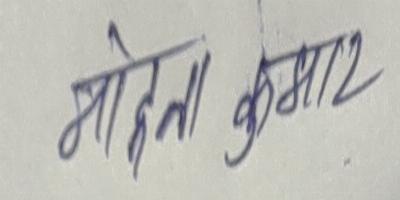 मोहन कुमार